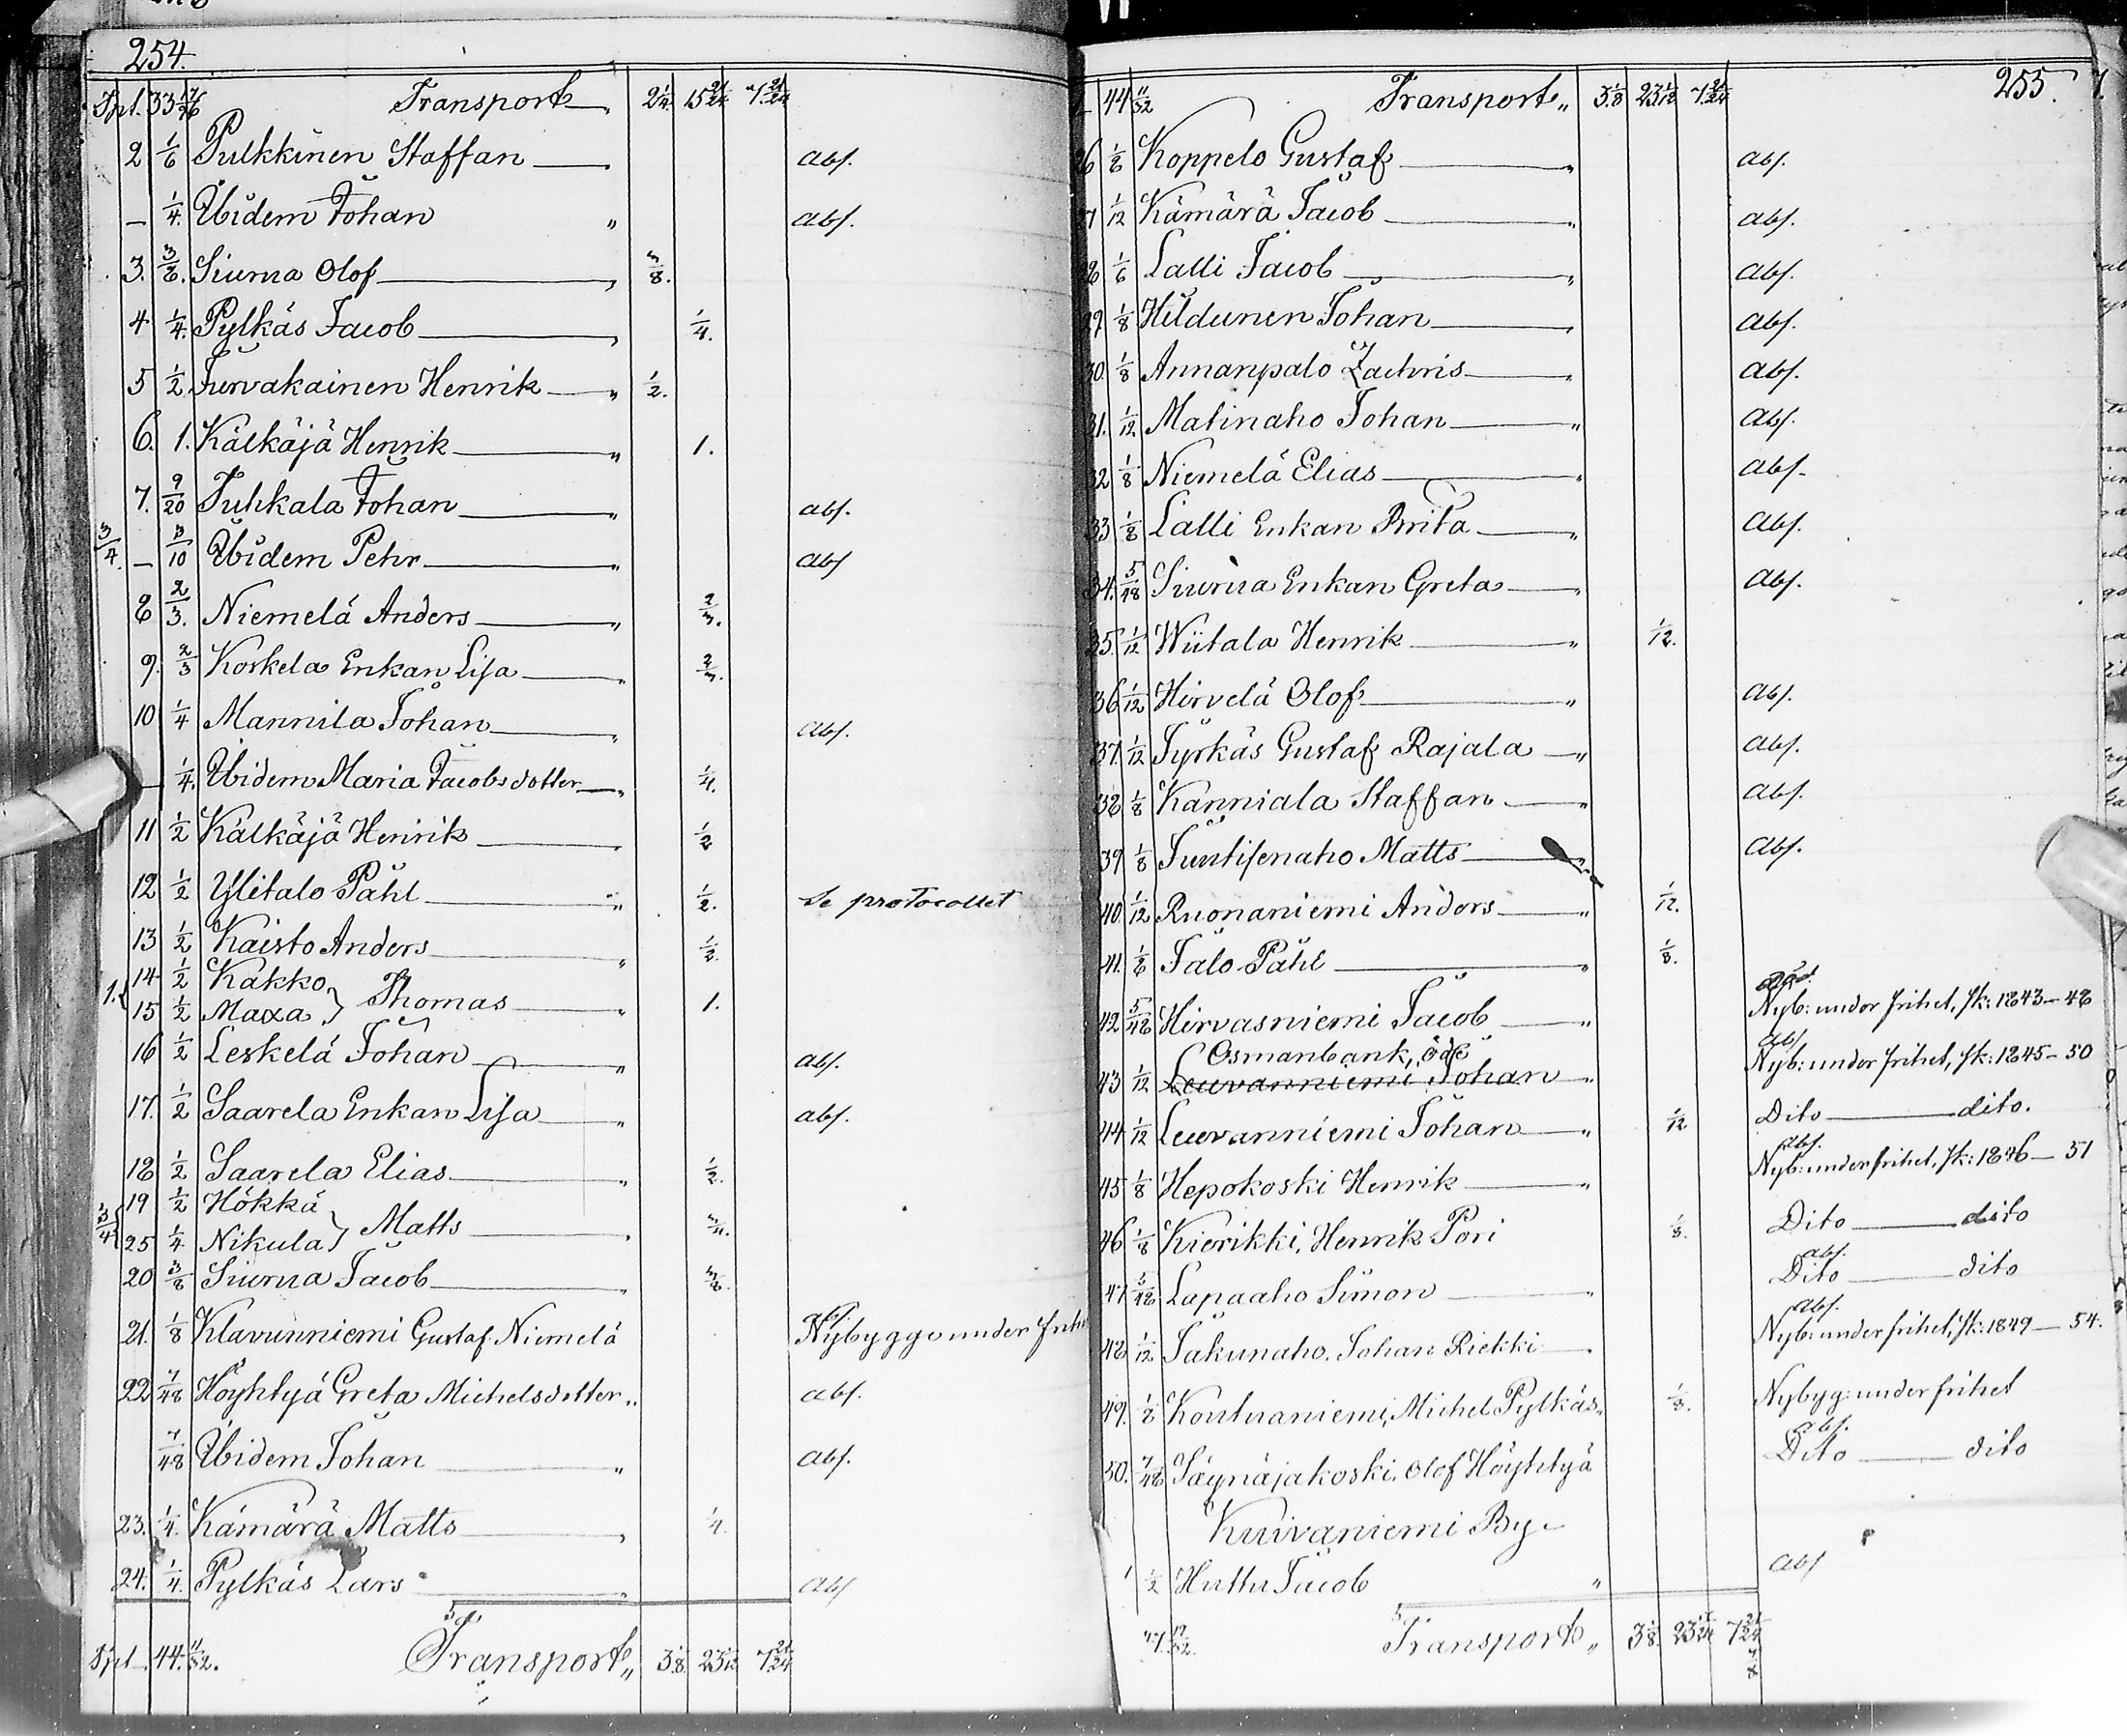 254.
Spl. 33 17/96 Transport „ 2 1/4. 15 21/24 7 21/24
2 1/6 Pulkkinen Staffan „ abs.
— 1/4. Ibidem Johan „ abs.
3. 3/8. Siurua Olof „ 3/8.
4 1/4. Pylkäs Jacob „ 1/4.
5 1/2 Turvakainen Henrik „ 1/2.
6. 1. Kälkäjä Henrik „ 1.
7. 9/20 Tuhkala Johan „ abs.
3/4. — 3/10 Ibidem Pehr „ abs
8 2/3. Niemelä Anders „ 2/3.
9. 2/3 Koskela Enkan Lisa „ 2/3.
10 1/4 Mannila Johan „ abs.
— 1/4. Ibidem Maria Jacobsdotter „ 1/4.
11 1/2 Kälkäjä Henrik „ 1/2
12 1/2 Ylitalo Påhl „ 1/2. Se protocollet
13 1/2 Kaisto Anders „ 1/2.
14 1/2 Kakko
1. 15 1/2 Maxa } Thomas „ 1.
16 1/2 Leskelä Johan „ abs.
17. 1/2 Saarela Enkan Lisa „ abs.
18 1/2 Saarela Elias „ 1/2.
19 1/2 Hökkä
3/4 25 1/4 Nikula } Matts „ 3/4.
20 3/8 Siurua Jacob „ 3/8.
abs.
21. 1/8 Klavunniemi Gustaf Niemelä Nybygge under frih
22 7/48 Höyhtyä Greta Michelsdotter „ abs.
7/48 Ibidem Johan „ abs.
23. 1/4. Kämärä Matts „ 1/4.
24. 1/4. Pylkäs Lars „ abs
Spl. 44. 11/32. Transport „ 3 1/8. 23 1/12 7 21/24
255.
44 11/32 Transport „ 3 1/8 23 1/12 7 21/24
26 1/8 Koppelo Gustaf „ abs.
27 1/12 Kämärä Jacob „ abs.
28 1/6 Lalli Jacob „ abs.
29. 1/8 Hildunen Johan „ abs.
30. 1/8 Annanpalo Zachris „ abs.
31. 1/12 Matinaho Johan „ abs.
32 1/8 Niemelä Elias „ abs.
33 1/8 Lalli Enkan Brita „ abs.
34. 5/48 Siurua Enkan Greta „ abs.
35. 1/12 Wiitala Henrik „ 1/12.
36 1/12 Hirvelä Olof „ abs.
37. 1/12 Tyrkäs Gustaf Rajala „ abs.
38 1/8 Kanniala Staffan „ abs.
39 1/8 Juntisenaho Matts „ abs.
40 1/12 Ruonaniemi Anders „ 1/12.
41. 1/8 Jalo Påhl „ 1/8.
42 5/48 Hirvasniemi Jacob „ Nyb: under frihet, sk: 1843–48
Osmanbank, öde abs
43 1/12 Leuvanniemi Johan „ Nyb: under frihet, sk: 1845–50
44 1/12 Leuvanniemi Johan „ 1/12 Dito — dito.
abs.
45 1/8 Hepokoski Henrik „ Nyb: under frihet, sk: 1846–51
46 1/8 Kierikki, Henrik Pori 1/8. Dito — dito
abs.
47 5/48 Lapaaho Simon „ Dito — dito
abs.
48 1/12 Jakunaho. Johan Riekki Nyb: under frihet, sk: 1849–54.
49. 1/8 Kontuaniemi, Michel Pylkäs „ 1/8. Nybyg: under frihet
abs.
50. 7/48 Säynäjakoski. Olof Höyhtyä Dito — dito
Kuivaniemi By
1 1/2 Huttu Jacob „ abs
47. 17/32. Transport „ 3 1/8. 23 1/24 7 21/24